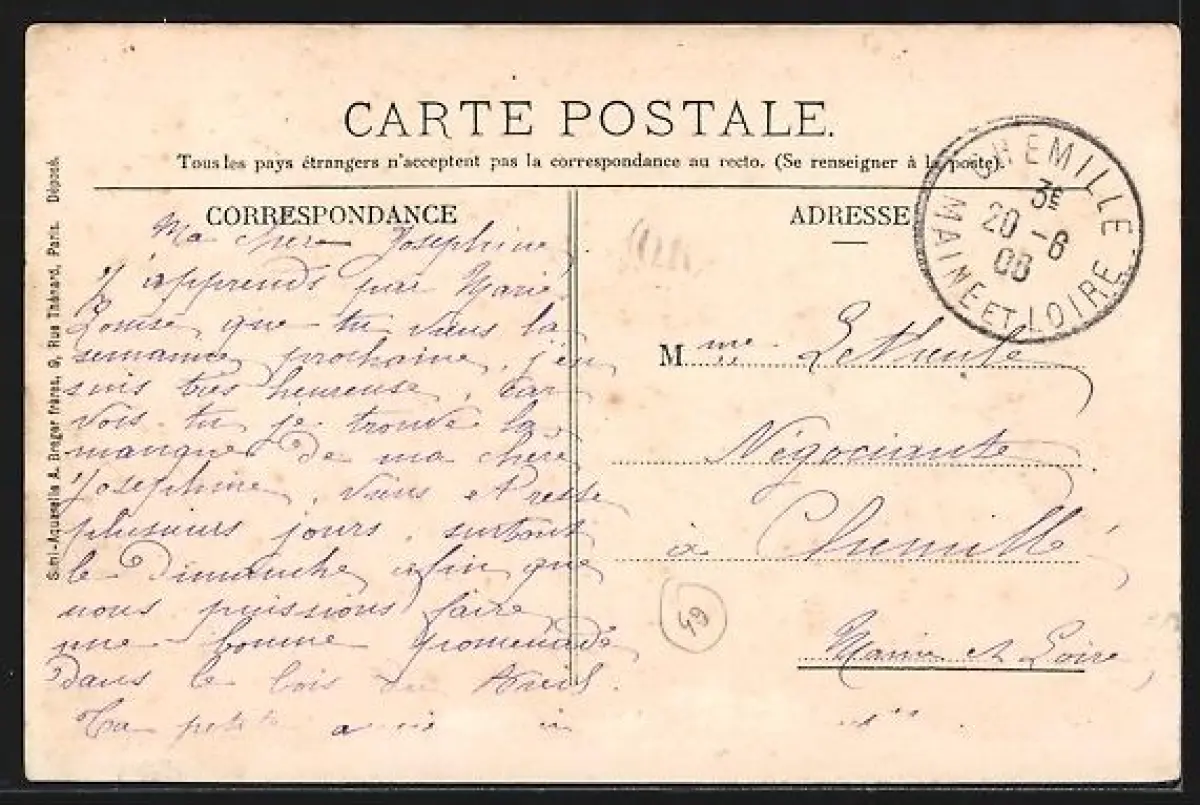 CARTE POSTALE.
Tous les pays étrangers n'acceptent pas la correspondance au recto. (Se renseigner à la poste).
CORRESPONDANCE
Ma chère Josephine,
J'apprends par Marie
Louise que tu viens la
semaine prochaine, j'en
suis très heureuse, car
vois-tu je trouve la
manque de ma chère
Josephine, viens et reste
plusieurs jours, surtout
le Dimanche afin que
nous puissions faire
une bonne promenade
dans le bois du
Ta petite amie
ADRESSE
CHEMILLE
3E
20 - 6
06
MAINE ET LOIRE
Mme
Négociante
à Chemillé
Maine et Loire
49
Simili-Aquarelle A. Breger frères, 9, Rue Thénard, Paris. Déposé.